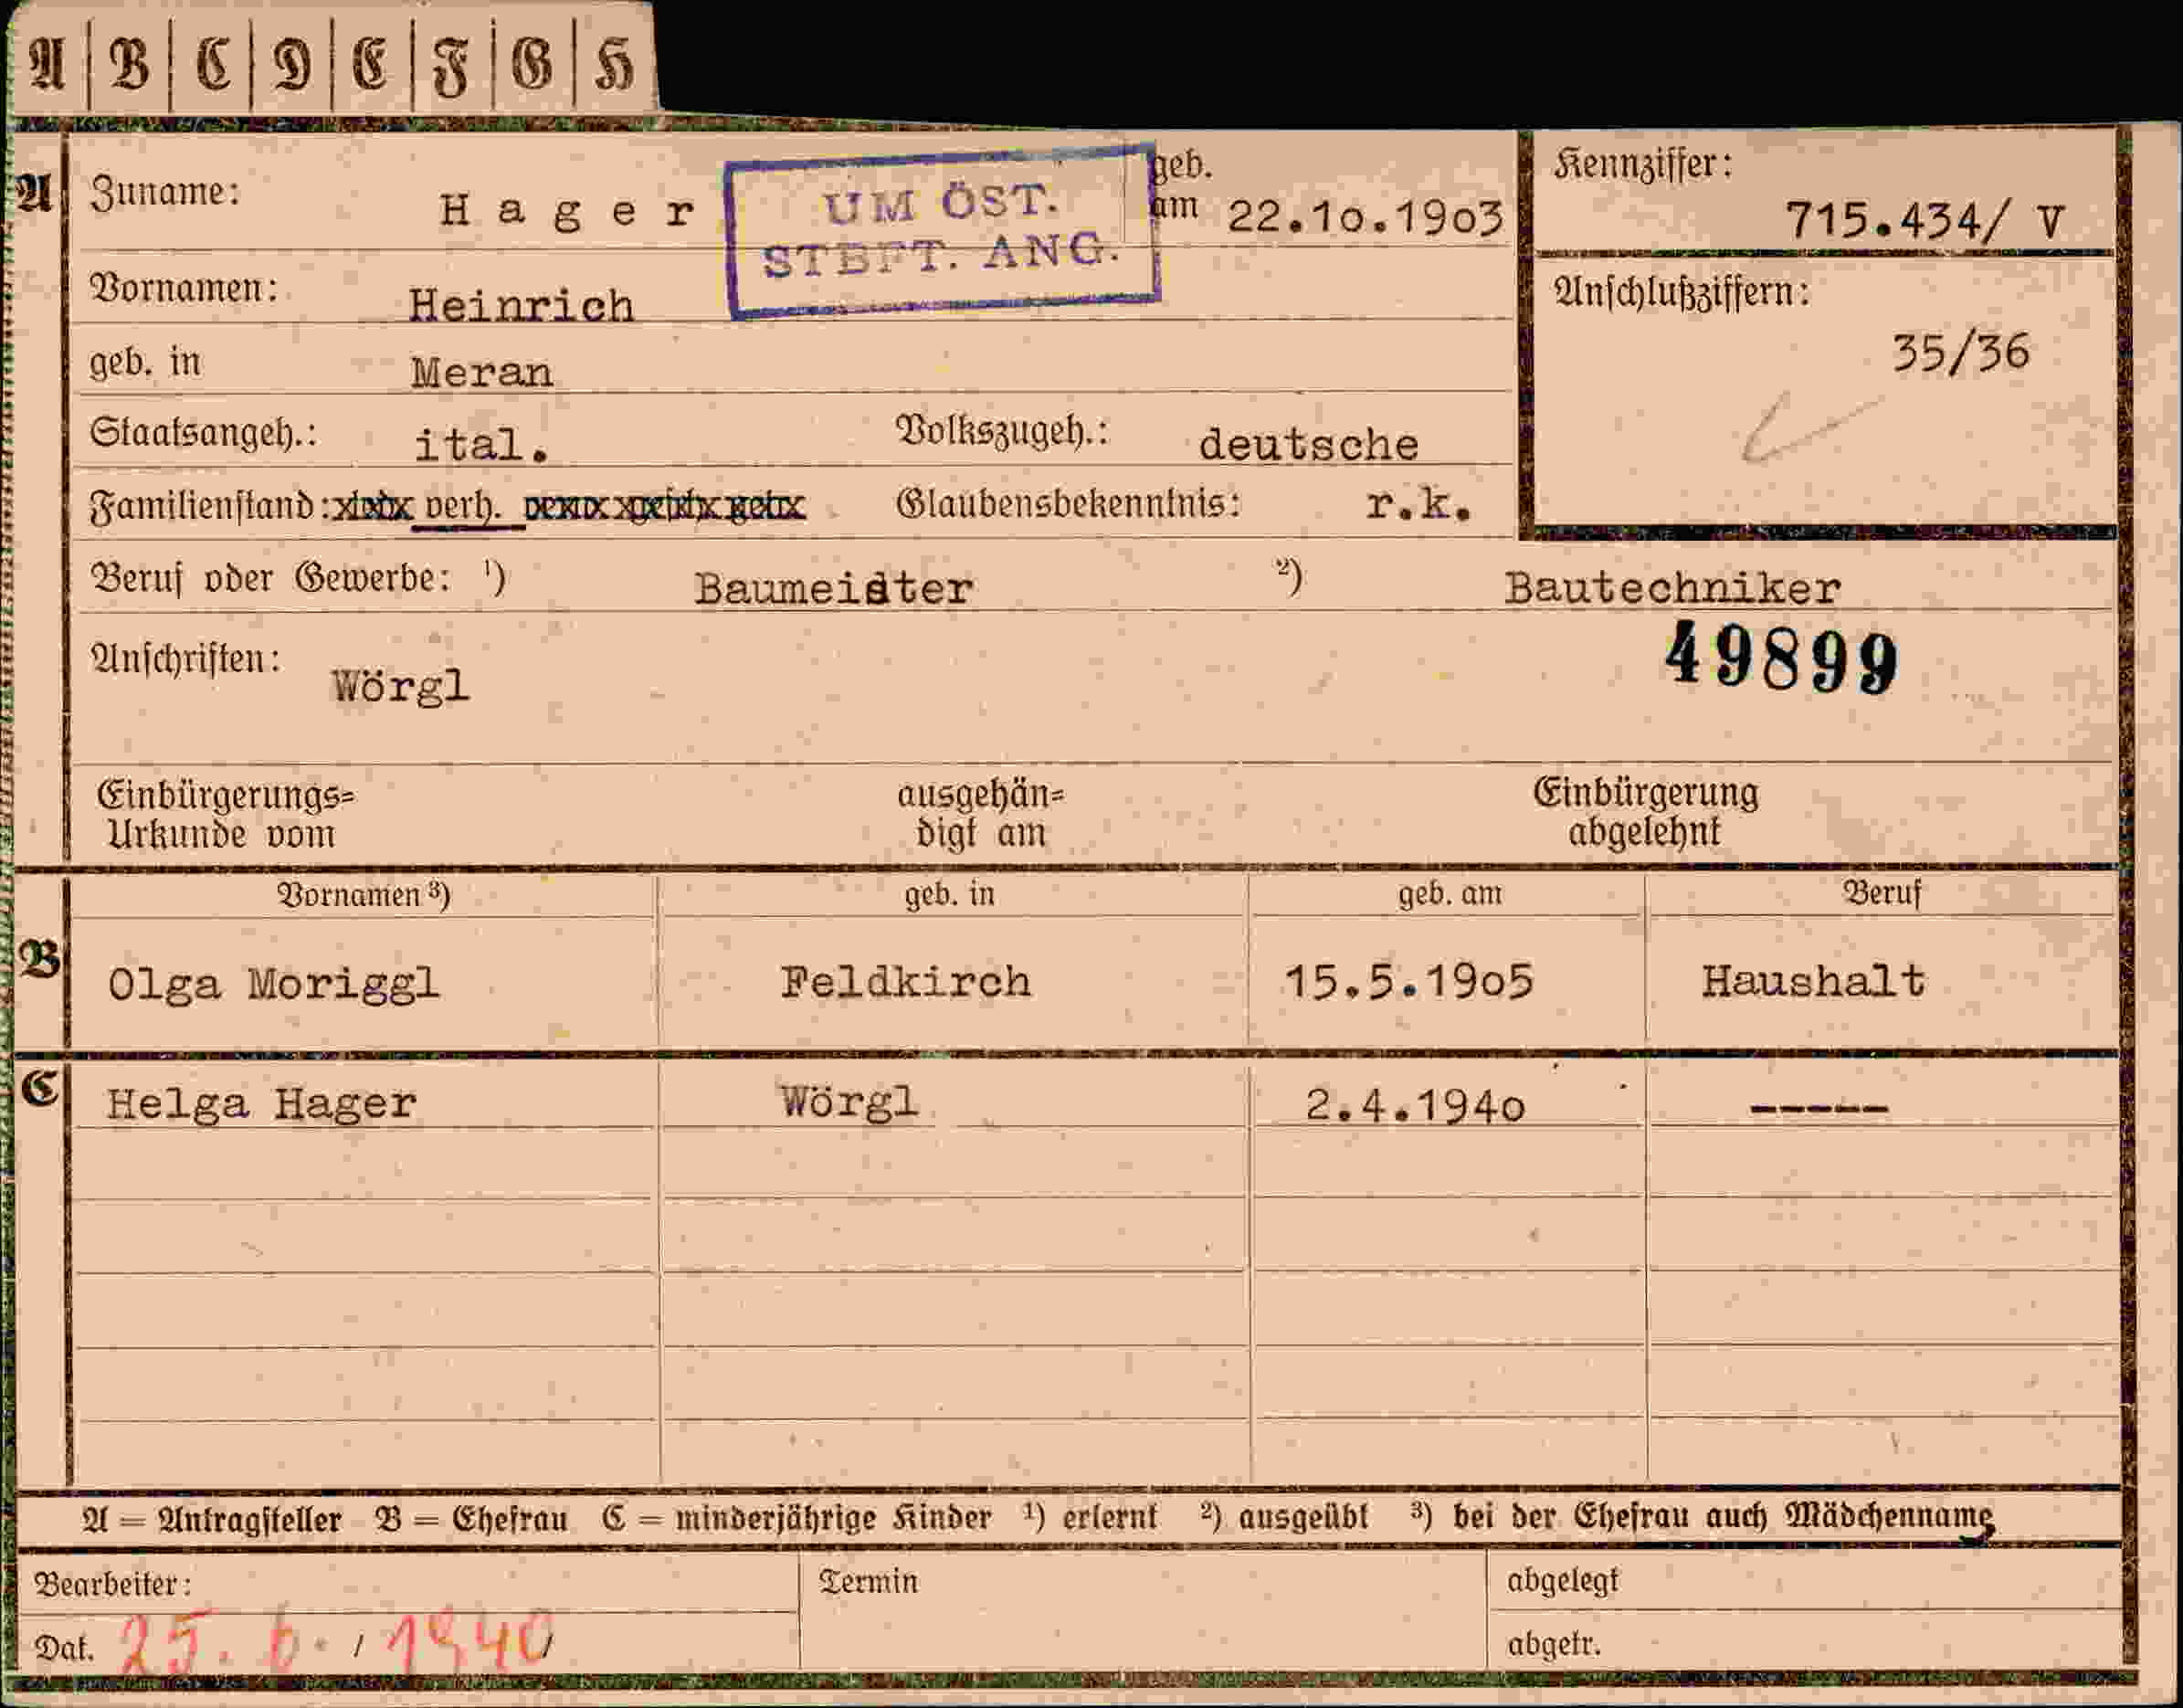 A | B | C | D | E | F | G | H
A Zuname: Hager geb. am 22.10.1903
UM ÖST.
STBFT. ANG.
Kennziffer:
715.434/ V
Vornamen: Heinrich
Anschlußziffern:
35/36
geb. in Meran
Staatsangeh.: ital. Volkszugeh.: deutsche
Familienstand: verh. Glaubensbekenntnis: r.k.
Beruf oder Gewerbe: 1) Baumeister 2) Bautechniker
49899
Anschriften: Wörgl
Einbürgerungs= ausgehän= Einbürgerung
Urkunde vom digt am abgelehnt
Vornamen 3) geb. in geb. am Beruf
B Olga Moriggl Feldkirch 15.5.1905 Haushalt
C Helga Hager Wörgl 2.4.1940 -----
A = Antragsteller B = Ehefrau C = minderjährige Kinder 1) erlernt 2) ausgeübt 3) bei der Ehefrau auch Mädchenname
Bearbeiter: Termin abgelegt
Dat. 25. 6. / 1940 abgetr.